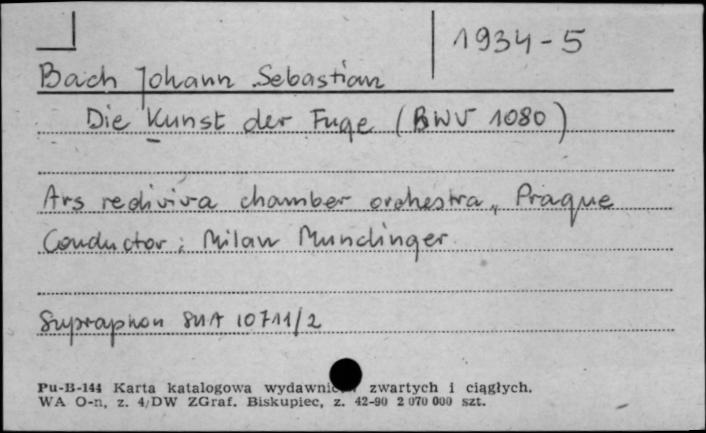 1934-5
Bach Johann Sebastian
Die Kunst der Fuge (BWV 1080)
Ars rediviva chamber orchestra, Prague
Conductor: Milan Munclinger
Supraphon SUA 10711/2
Pu-B-144 Karta katalogowa zwartych i ciągłych.
WA O-n, z. 4/DW ZGraf. Biskupiec, z. 42-90 2 070 000 szt.